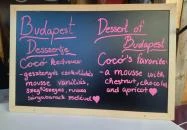 Budapest
Desszertje
Cocó kedvence
-gesztenyés csokoládés
mousse variálás,
sárgabarack zselével ♥
Dessert of
Budapest
Coco's favorite:
- a mousse with
chestnut, chocolate
and apricot ♥